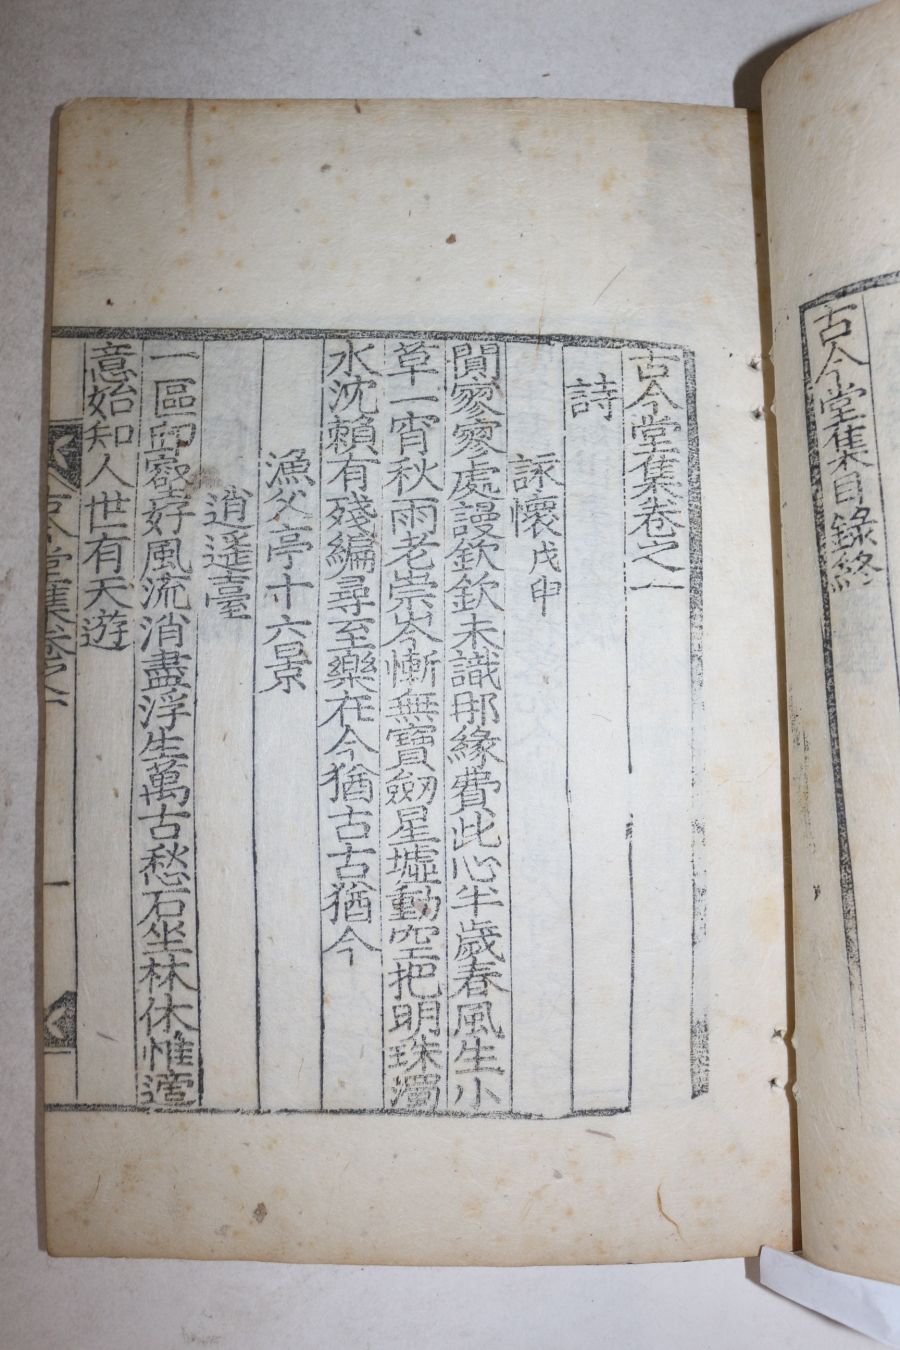 古今堂集目錄終
古今堂集卷之一
詩
詠懷戊申
闃寥寥處謾欽欽未識那緣費此心半歲春風生小
草一宵秋雨老崇岑慚無寶劒星墟動空把明珠濁
水沈賴有殘編尋至樂在今猶古古猶今
漁父亭十六景
逍遥臺
一區卽窩好風流消盡浮生萬古愁石坐林休惟適
意始知人世有天遊
古今堂集卷之一
一